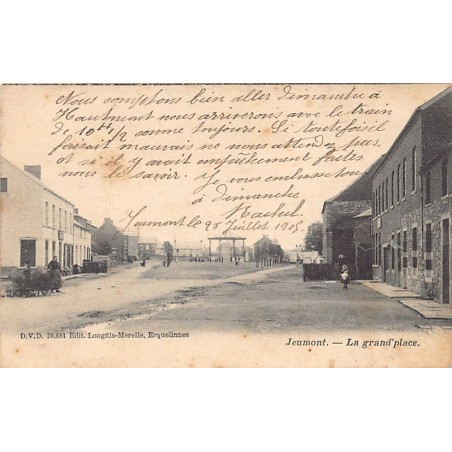 Nous comptons bien aller dimanche à
Hautmont nous arriverons avec le train
de 10h 1/2 comme toujours. Si toutefois il
faisait mauvais ne nous attendez pas
et si il y avait empêchement faites
nous le savoir. Je vous embrasse tous
à dimanche
Jeumont le 28 Juillet 1905
D.V.D. 10.681 Edit. Longfils-Merelle, Erquelinnes
Jeumont. — La grand'place.